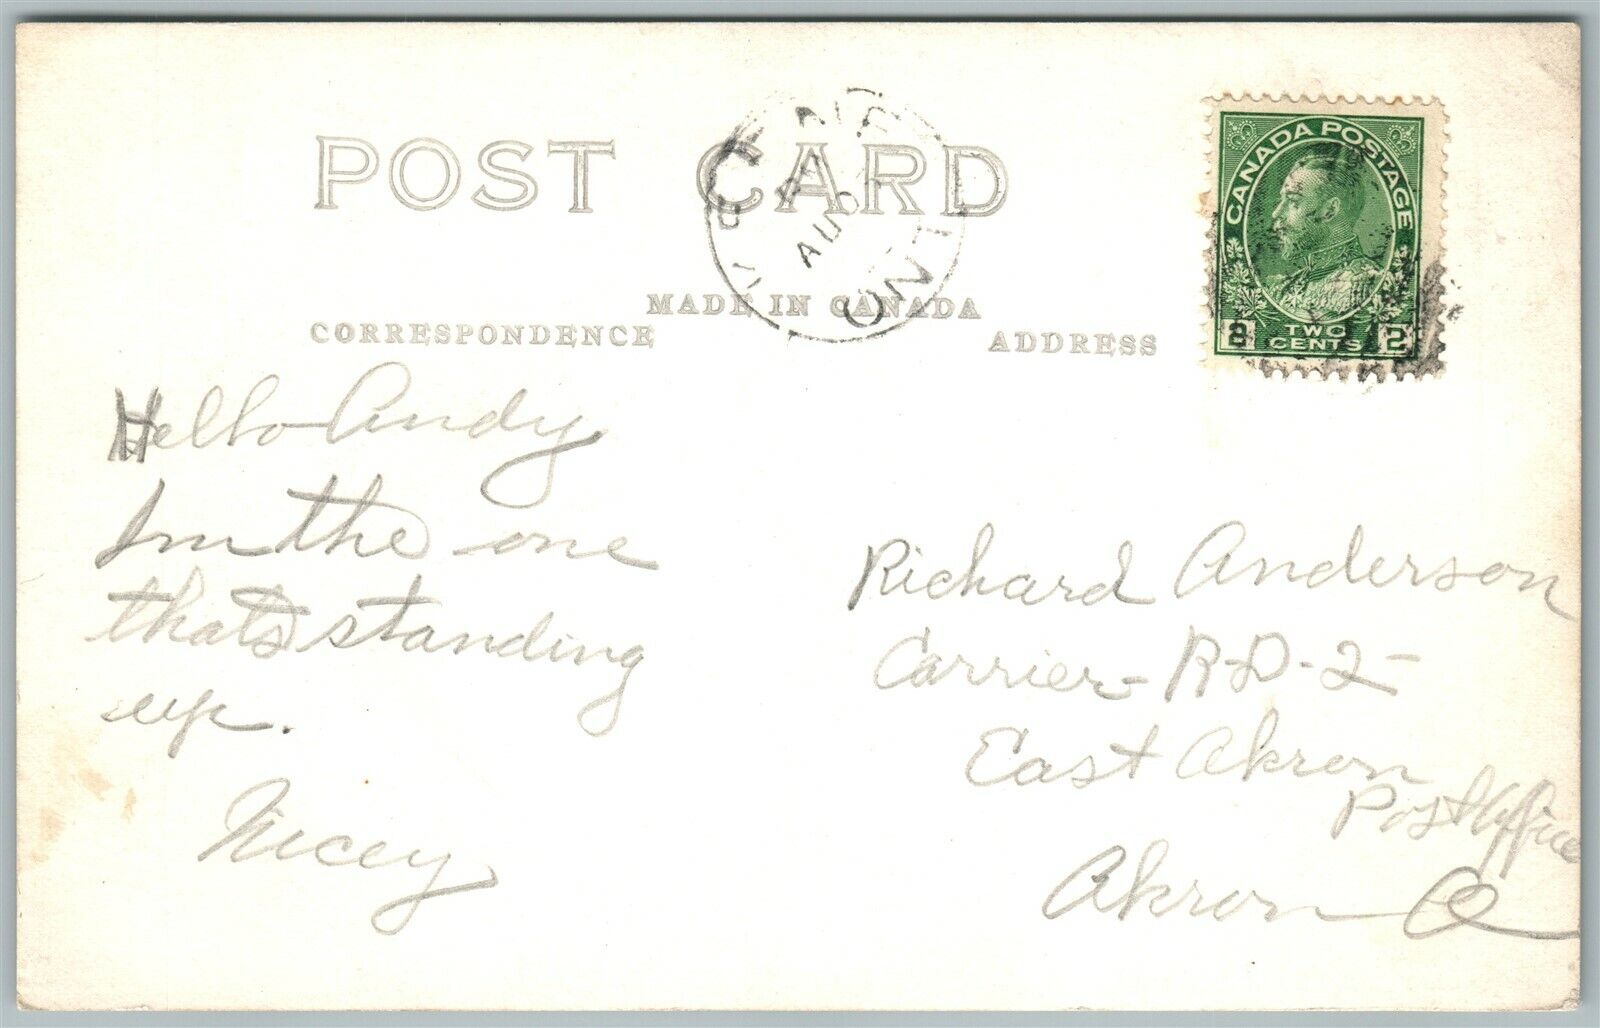 POST CARD
MADE IN CANADA
CORRESPONDENCE
ADDRESS
CANADA POSTAGE
2 TWO CENTS 2
AU
ONT
Hello Andy
Im the one
thats standing
up.
Richard Anderson
Carrier- R-D-2-
East Akron
Post Office
Akron O